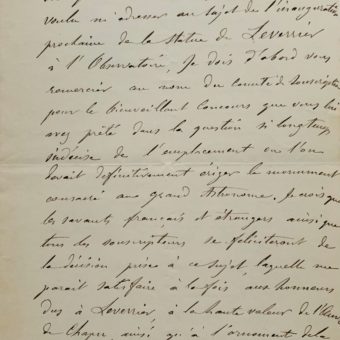 voulu m'adresser au sujet de l'inauguration
prochaine de la statue de Leverrier
à l'Observatoire. Je dois d'abord vous
remercier au nom du comité de souscription
pour le bienveillant concours que vous lui
avez prêté dans la question si longtemps
indécise de l'emplacement où l'on
devait définitivement ériger le monument
consacré au grand Astronome. Je crois que
les savants français et étrangers ainsi que
tous les souscripteurs se féliciteront de
la décision prise à ce sujet, laquelle me
parait satisfaire à la fois aux honneurs
dus à Leverrier, à la haute valeur de l'Œuvre
de Chapu, ainsi qu'à l'ornement de la